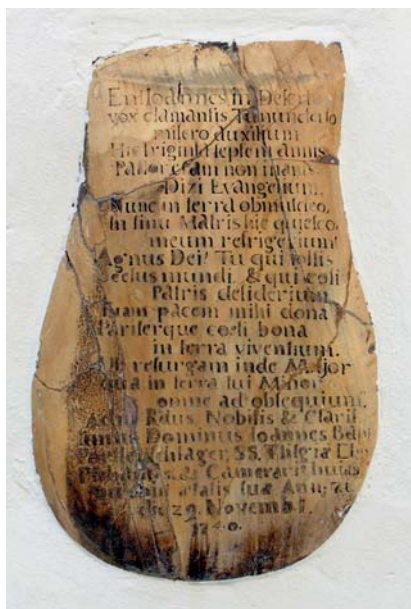 En Ioannes in Desert
vox clamantis Tu nunc
misero auxilium
Hic triginta septem annis
Pastor eram non inanis
Dixi Evangelium.
Nunc in terra obmutesco,
In sinu Matris hic quiesco,
meum refrigerium
Agnus Dei! Tu qui tollis
Scelus mundi, & qui coli
Patris desiderium
Etiam pacem mihi dona
Pariterque coeli bona
in terra viventium.
Ut resurgam inde Major
quia in terra fui Minor
omne ad obsequium.
Adm. Rdus, Nobilis & Claris
simus Dominus Ioannes Bapt
SS. Theol
& Camerarius huius
aetatis suae Ann: 72
die 29. Novemb
1740.